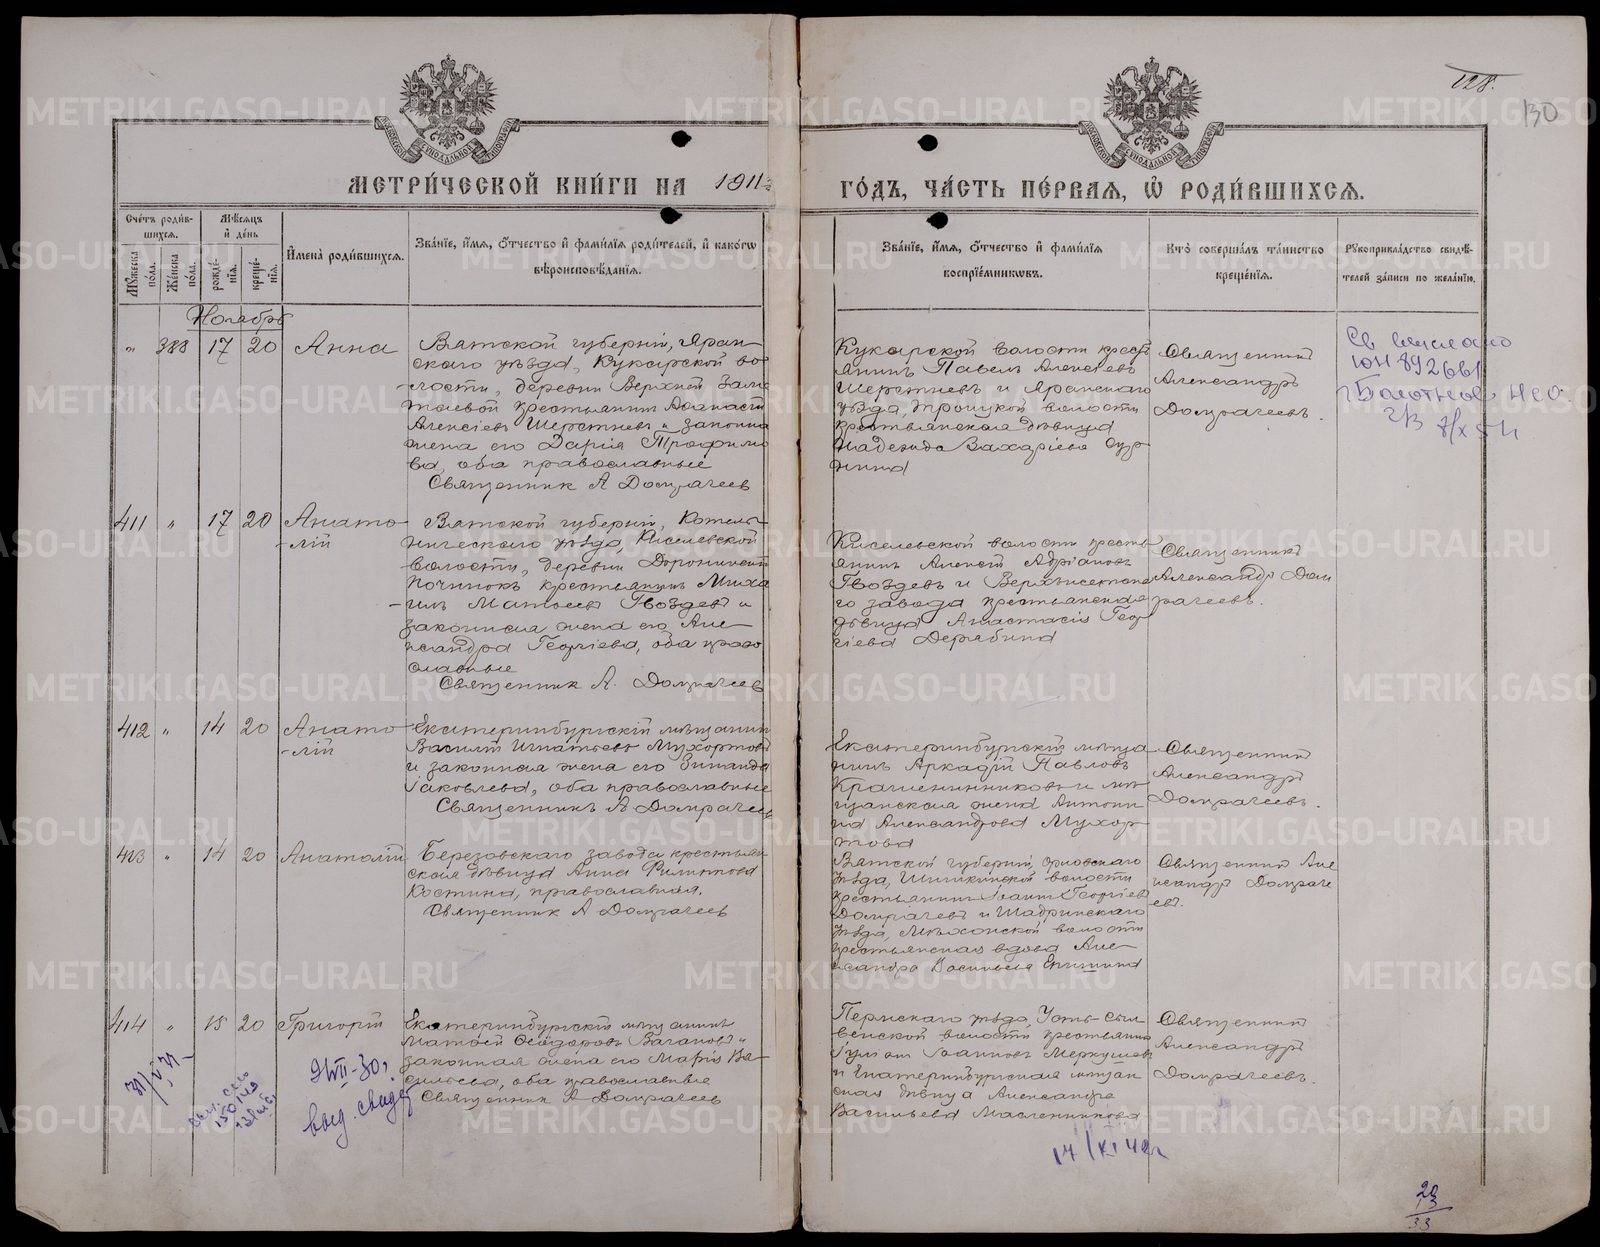 128.
130
МЕТРИ́ЧЕСКОЙ КНИ́ГИ НА 1911
ГО́ДЪ, ЧА́СТЬ ПЕ́РВАЯ, Ѡ РОДИ́ВШИХСЯ.
Сче́тъ роди́в-
шихся.
Му́жеска по́ла.
Же́нска по́ла.
Мѣ́сяцъ
и́ де́нь
рожде́-
нїя.
креще́-
нїя.
И҆мена̀ роди́вшихся.
Зва́нїе, и҆́мя, о҆́тчество и҆ фами́лїя роди́телей, и҆ како́гѡ
вѣроисповѣ́данїя.
Зва́нїе, и҆́мя, о҆́тчество и҆ фами́лїя
воспрїе́мникѡвъ.
Кто̀ соверша́лъ та́инство
креще́нїя.
Рꙋкоприкла́дство свидѣ́-
телей за́писи по жела́нїю.
Ноябрь
" 383 17 20 Анна
Вятской губернiи, Яран-
скаго уѣзда, Кукарской во-
лости, деревни Верхней
крестьянинъ Аѳанасiй
Алексѣевъ Шерстневъ и законная
жена его Дарiя Трофимо-
ва, оба православные
Священник А Домрачеев
Кукарской волости крест
янинъ Павелъ Алексѣевъ
Шерстневъ и Яранскаго
уѣзда, Троицкой волости
крестьянская дѣвица
Надежда Захарiева
Священникъ
Александръ
Домрачеевъ.
Св выслано
ЮН 892661
8/X 51
411 " 17 20 Анато-
-лiй
Вятской губернiи, Котель-
ническаго уѣзда, Киселевской
волости, деревни Доронинскiй
починокъ крестьянинъ Миха
-илъ Матѳеевъ Гвоздевъ и
законная жена его Але-
ксандра Георгiева, оба право
славные
Священник А. Домрачеев
Киселевской волости кресть
янинъ Алексiй Адрiановъ
Гвоздевъ и Верхъисетска
го завода крестьянская
дѣвица Анастасiя Геор
гiева Дерябина
Священникъ
Александръ Дом
рачеевъ.
412 " 14 20 Анато-
-лiй
Екатеринбургскiй мѣщанинъ
Василiй Игнатьевъ Мухортовъ
и законная жена его Зинаида
Iаковлева, оба православные
Священникъ А Домрачеев
Екатеринбургскiй мѣща
нинъ Аркадiй Павловъ
Крашенинниковъ и мѣ
щанская жена Антони
на Александрова Мухор-
това
Священникъ
Александръ
Домрачеевъ.
413 " 14 20 Анатолiй
Березовскаго завода крестьян
ская дѣвица Анна Филиппова
Костина, православная.
Священник А Домрачеев
Вятской губернiи, Орловскаго
уѣзда, Шишкинской волости
крестьянинъ Iоаннъ Георгiевъ
Домрачеевъ и Шадринскаго
уѣзда, Мѣхонской волости
крестьянская вдова Але-
ксандра Васильева
Священникъ Але
ксандръ Домраче
евъ.
414 " 15 20 Григорiй
Екатеринбургскiй мѣщанинъ
Матѳей Ѳеодоровъ Вагановъ и
законная жена его Марiя Ва-
сильева, оба православные
Священник А Домрачеев
Пермскаго уѣзда, Усть-Сыл
венской волости крестьянинъ
Iулiанъ Iоанновъ Меркушевъ
и Екатеринбургская мѣщан
ская дѣвица Александра
Васильева Масленникова
Священникъ
Александръ
Домрачеевъ.
выд. свид
14/XI 42г
20
13
33